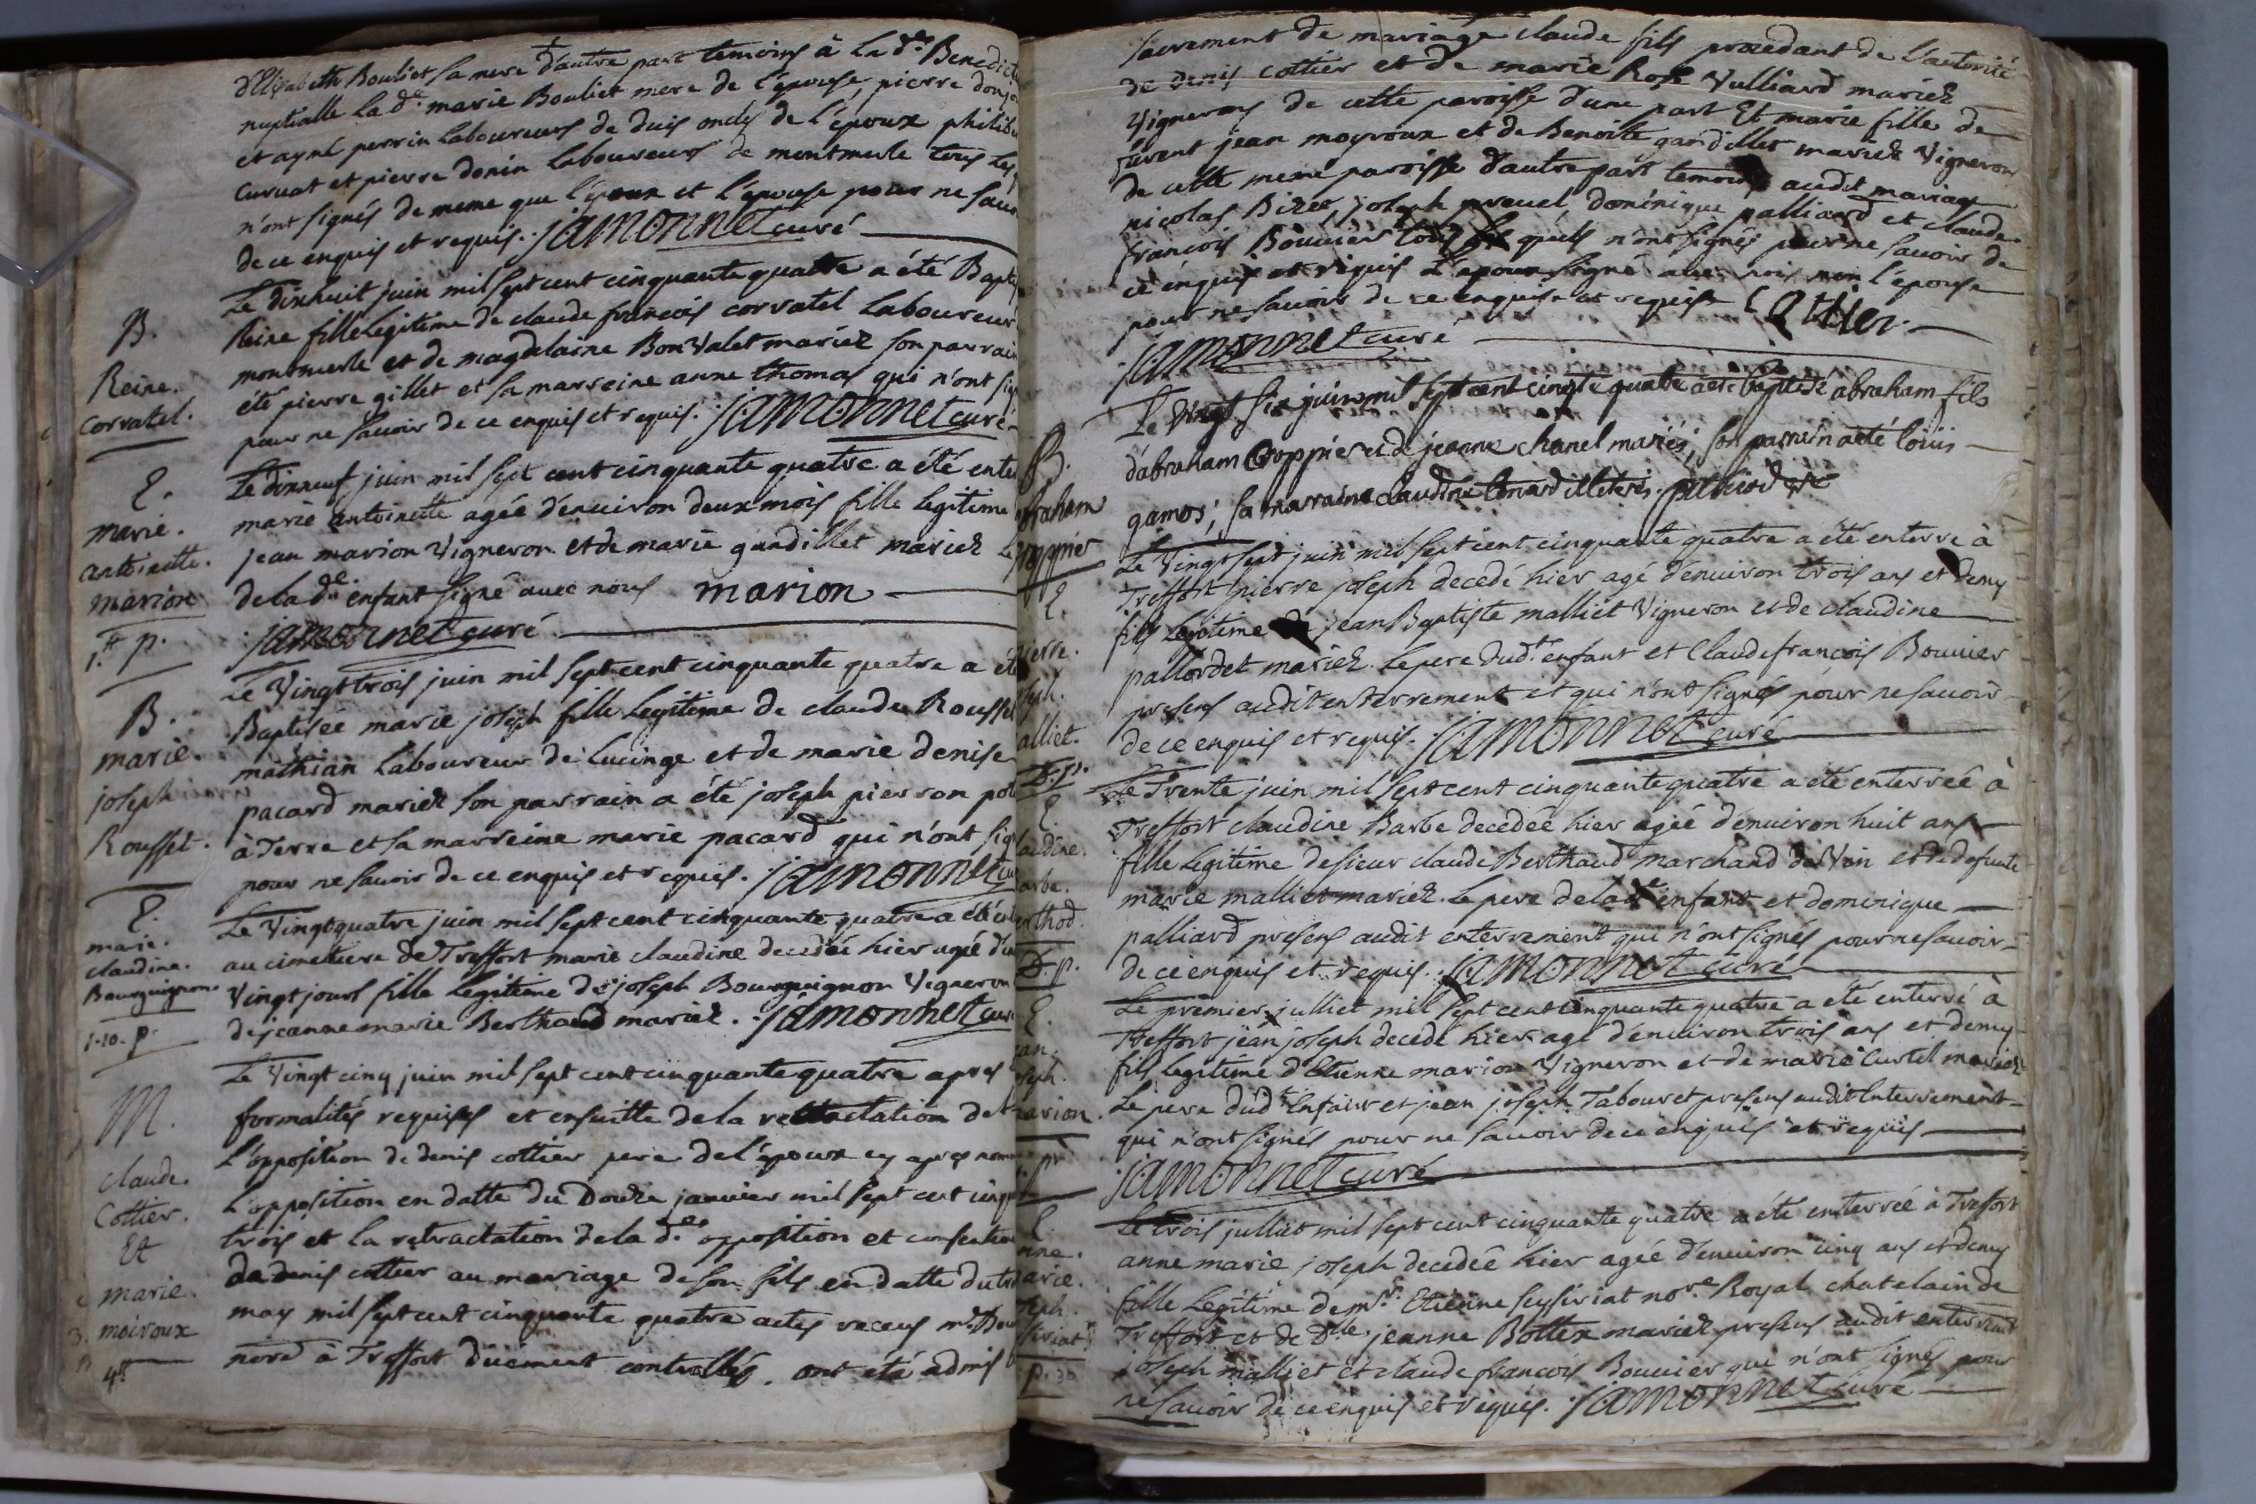 d'Elizabeth Bouliet sa mere d'autre part temoins à la d.e Benedict
nuptialle la d.e marie Bouliet mere de l'épouse, pierre donjo
et aymé perrin laboureurs de duis oncles de l'époux philib
curuat et pierre donin laboureurs de montmerle tous les
n'ont signés de meme que l'époux et l'épouse pour ne sauo
de ce enquis et requis. jamonnet curé
B.
Reine.
corvatel.
Le dixhuit juin mil sept cent cinquante quatre a été Bapt
Reine fille legitime de claude francois corvatel Laboureur
montmerle et de magdelaine Bonvalet mariez son parrain
été pierre gillet et sa marreine anne thomas qui n'ont sig
pour ne sauoir de ce enquis et requis. jamonnet curé
E.
marie.
antoinette.
marion
1.# p.
Le dixneuf juin mil sept cent cinquante quatre a été ente
marie antoinette agée d'enuiron deux mois fille legitime
jean marion Vigneron et de marie gandillet mariez Le
de la d.e enfant signé auec nous marion
jamonnet curé
B.
marie.
joseph
Rousset.
Le Vingt trois juin mil sept cent cinquante quatre a été
Baptisée marie joseph fille legitime de claude Rousset
mathian laboureur de Lucinge et de marie denise
pacard mariez son parrain a été joseph pierron pot
à Terre et sa marreine marie pacard qui n'ont sig
pour ne sauoir de ce enquis et requis. jamonnet cu
E.
marie.
claudine.
Bourguignon.
1-10. p.
Le Vingt quatre juin mil sept cent cinquante quatre a été en
au cimetiere de Treffort marie claudine decedée hier agée d'en
Vingt jours fille legitime de joseph Bourguignon Vigneron
de jeanne marie Berthaud mariez. jamonnet cur
M.
claude.
Cottier.
Et
marie.
moiroux
4#
Le Vingt cinq juin mil sept cent cinquante quatre apres
formalités requises et ensuitte de la retractation de
L'opposition de denis cottier pere de l'époux cy apres nomm
L'opposition en datte du Douze janvier mil sept cent cinqu
trois et la retractation de la d.e opposition et consentem
de denis cottier au mariage de son fils en datte du tr
may mil sept cent cinquante quatre actes receus m.e Bou
nore à Treffort duement controllés. ont été admis
sacrement de mariage claude fils procedant de l'autorité
de denis cottier et de marie Rose Vulliard mariez
Vignerons de cette paroisse d'une part Et marie fille de
furent jean moyroux et de Benoite gandillet mariez Vignerons
de cette meme paroisse d'autre part temoins audit mariage
nicolas Bizet, joseph preuel dominique palliard et claude
francois Bouuier qu'ils n'ont signés pour ne sauoir de
ce enquis et requis L'epoux signé auec nous non l'épouse
pour ne sauoir de ce enquise et requise Cottier.
jamonnet curé
B.
abraham
coppier
Le Vingt six juin mil sept cent cinqte quatre a été baptisé abraham fils
d'abraham Coppier et de jeanne chanel mariés; son parrein a été loüis
gamos; sa marraine claudine tenard illeterés.
E.
pierre.
joseph.
malliet.
D. p.
Le Vingt sept juin mil sept cent cinquante quatre a été enterré à
Treffort pierre joseph decedé hier agé d'enuiron trois ans et demy
fils legitime de jean Baptiste malliet Vigneron et de claudine
pallordet mariez. Le pere dud.t enfant et Claude françois Bouuier
presens audit enterrement et qui n'ont signés pour ne sauoir
de ce enquis et requis. jamonnet curé
E.
claudine.
barbe.
berthod.
D. p.
Le Trente juin mil sept cent cinquante quatre a été enterreé à
Treffort claudine Barbe decedée hier agée d'enuiron huit ans
fille legitime de sieur claude Berthaud marchand de Vin et de defunte
marie malliet mariez. Le pere de lade enfant et dominique
palliard presens audit enterrement qui n'ont signés pour ne sauoir
de ce enquis et requis. jamonnet curé
E.
jean.
joseph.
marion.
Le premier julliet mil sept cent cinquante quatre a été enterré à
Treffort jean joseph decedé hier agé d'enuiron trois ans et demy
fils legitime d'Etienne marion Vigneron et de marie Curtil mariez
Le pere dud.t Enfant et jean joseph Tabouret presens audit Enterrement
qui n'ont signés pour ne sauoir de ce enquis et requis
jamonnet curé
E.
anne.
marie.
joseph.
seysiriat
Le trois julliet mil sept cent cinquante quatre a été enterreé à Treffort
anne marie joseph decedée hier agée d'enuiron cinq ans et demy
fille legitime de m.r Etienne seysiriat no.re Royal chatelain de
Treffort et de D.lle jeanne Bottex mariez presens audit enterrement
joseph malliet et claude francois Bouuier qui n'ont signés pour
ne sauoir de ce enquis et requis. jamonnet curé